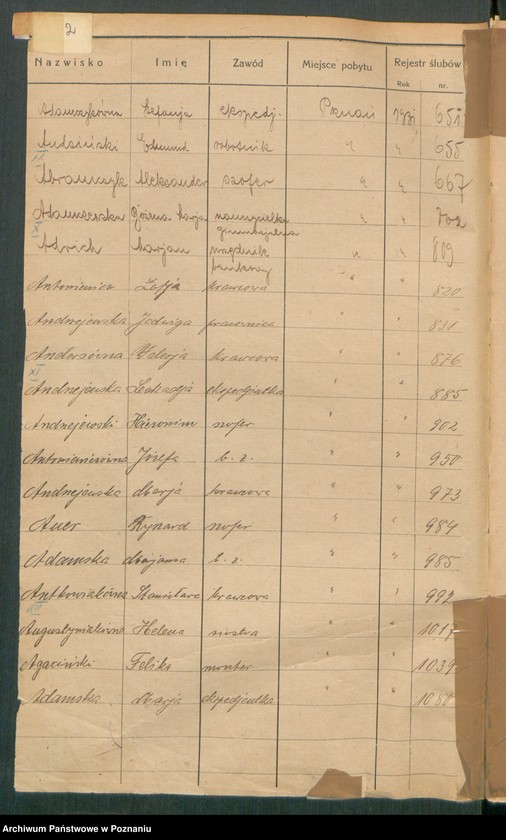 2
Nazwisko Imię Zawód Miejsce pobytu Rejestr ślubów
Rok nr.
Adamczykówna ekspedj. Poznań 1931 651
Edmund robotnik " " 655
IX
Abramczyk Aleksander szofer " " 667
Adamczewska Marja nauczycielka " " 702
gimnazjalna
X
Adrich Marjan urzędnik " " 809
bankowy
Zofja krawcowa " " 820
Andrzejewska Jadwiga pracownica " " 831
Andersówna Walerja krawcowa " " 876
XI
Andrzejewska Leokadja ekspedjentka " " 885
Andrzejewski Hieronim szofer " " 902
Antoniewiczówna Józefa b. z. " " 950
Andrzejewska Marja krawcowa " " 973
Auer Rynard szofer " " 984
Adamska Marjanna b. z. " " 985
Antkowiakówna Stanisława krawcowa " " 992
XII
Augustyniakówna Helena siostra " " 1017
Agaciński Feliks monter " " 1039
Adamska Marja ekspedjentka " " 1080
Archiwum Państwowe w Poznaniu